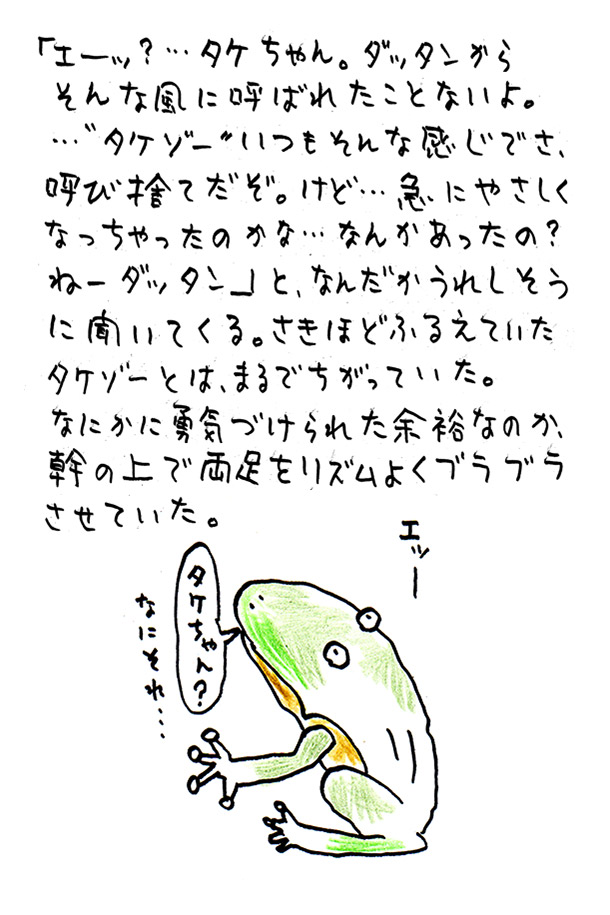 「エーッ?…タケちゃん。ダッタンから
そんな風に呼ばれたことないよ。
…"タケゾー"いつもそんな感じでさ、
呼び捨てだぞ。けど…急にやさしく
なっちゃったのかな…なんかあったの?
ねーダッタン」と、なんだかうれしそう
に聞いてくる。さきほどふるえていた
タケゾーとは、まるでちがっていた。
なにかに勇気づけられた余裕なのか、
幹の上で両足をリズムよくブラブラ
させていた。
エッー
タケちゃん?
なにそれ…